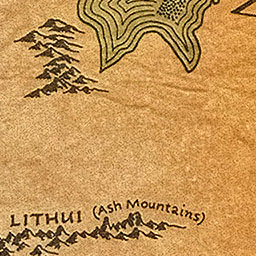 LITHUI (Ash Mountains)